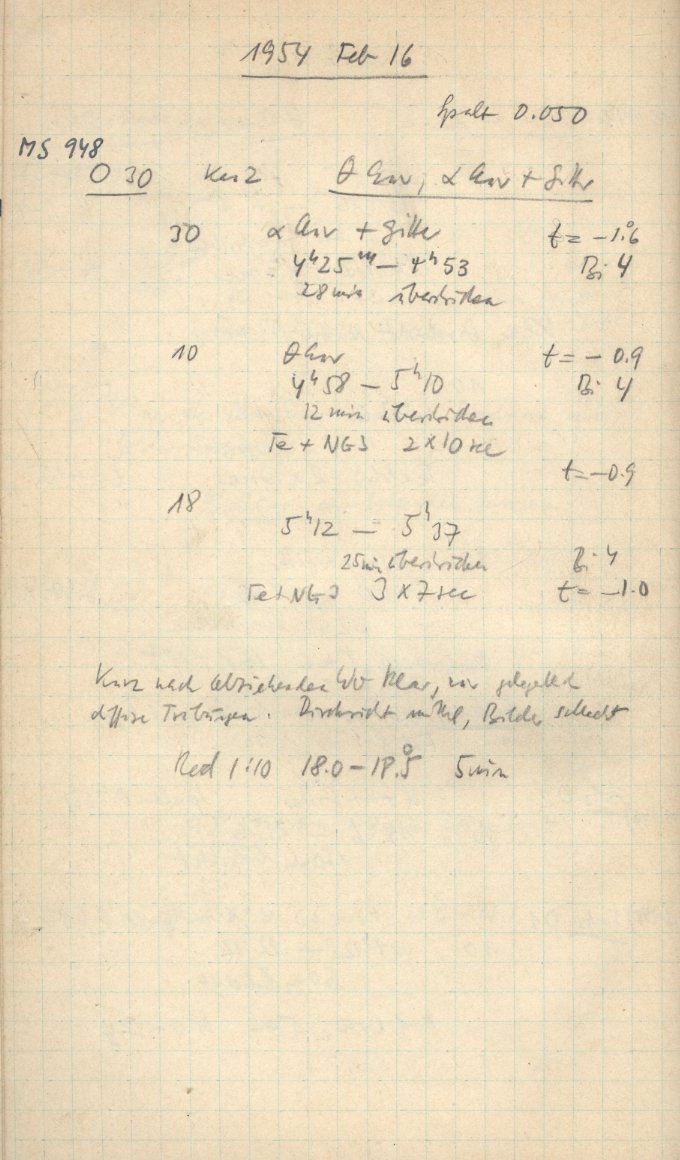 1954 Feb 16
Spalt 0.050
MS 948
O 30 Kurz θ Aur, α Aur + Gitter
30 α Aur + Gitter t = -1.°6
4ʰ25ᵐ — 4ʰ53 Bi 4
28 min überstrichen
10 θ Aur t = - 0.9
4ʰ58 — 5ʰ10 Bi 4
12 min überstrichen
Te + NG3 2 x 10 sec
t = -0.9
18
5ʰ12 — 5ʰ37
25 min überstrichen Bi 4
Te + NG3 3 x 7 sec t = -1.0
Kurz nach abziehenden klar, nur gelegentlich
diffuse Trübungen. Durchsicht mittel, Bilder schlecht
Red 1:10 18.0 — 18.°5 5 min